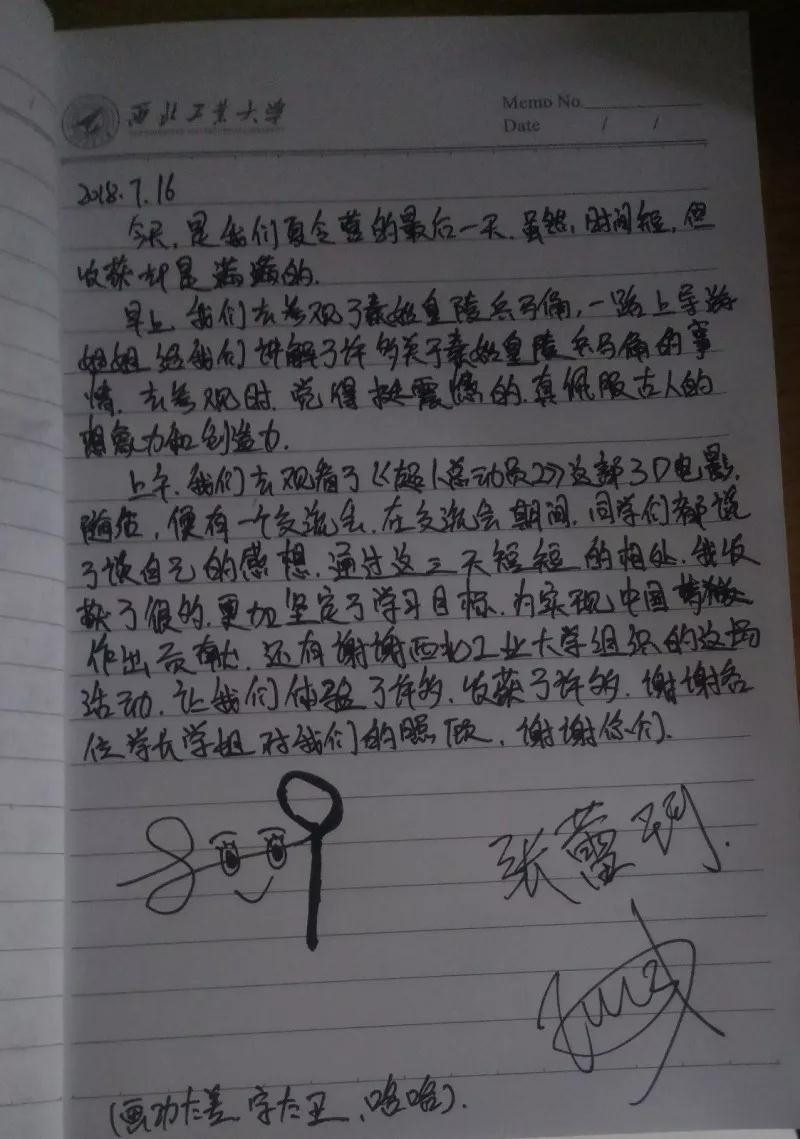 西北工业大学
Memo No.
Date / /
2018.7.16
今天,是我们夏令营的最后一天.虽然,时间短,但
收获却是满满的.
早上,我们去参观了秦始皇陵兵马俑,一路上导游
姐姐给我们讲解了许多关于秦始皇陵兵马俑的事
情,去参观时,觉得挺震憾的,真佩服古人的
想象力和创造力.
上午,我们去观看了《超人总动员2》这部3D电影,
随后,便有一个交流会.在交流会期间,同学们都说
了谈自己的感想.通过这三天短短的相处,我收
获了很的,更加坚定了学习目标,为实现中国
作出贡献,还有谢谢西北工业大学组织的这场
活动,让我们体验了许多,收获了许多,谢谢各
位学长学姐对我们的照顾,谢谢你们.
张蕾
(画功太差,字太丑,哈哈).